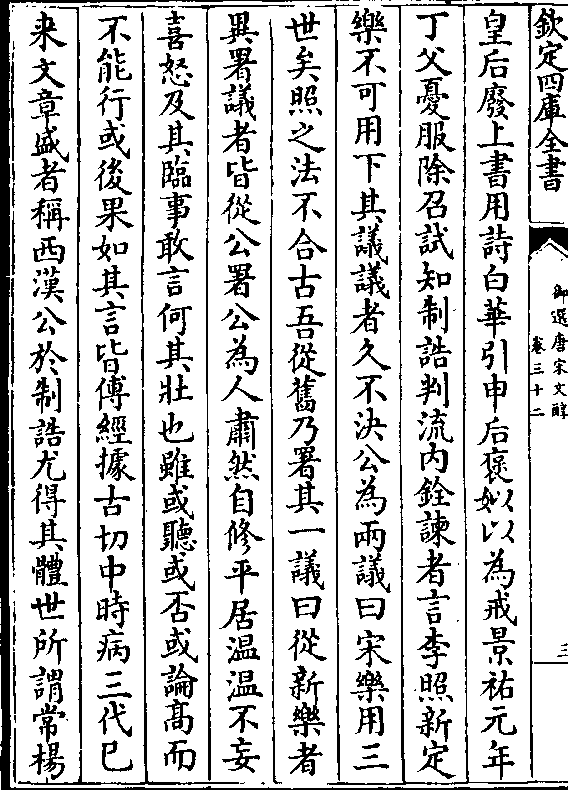 欽定四庫全書
御選唐宋文醇
卷三十二
三
皇后廢上書用詩白華引申后褒姒以為戒景祐元年
丁父憂服除召試知制誥判流内銓諫者言李照新定
樂不可用下其議議者久不決公為兩議曰宋樂用三
世矣照之法不合古吾從舊乃署其一議曰從新樂者
異署議者皆從公署公為人肅然自修平居温温不妄
喜怒及其臨事敢言何其壯也雖或聽或否或論髙而
不能行或後果如其言皆傅經據古切中時病三代已
来文章盛者稱西漢公於制誥尤得其體世所謂常楊